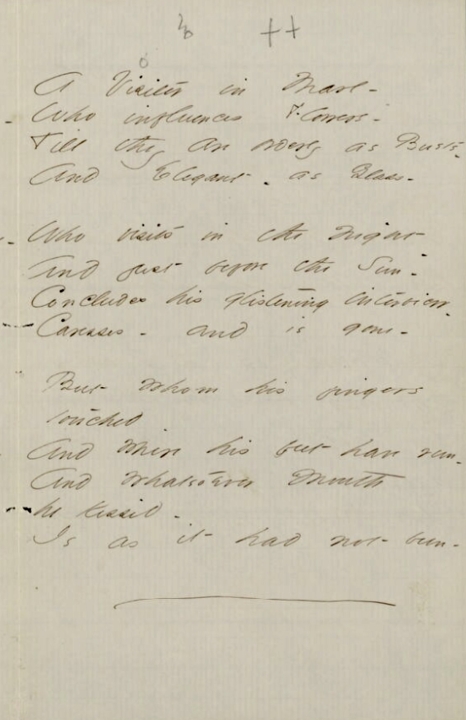 A Visitor in Marl -
Who influences Flowers -
Till they are orderly as Busts
And Elegant - as Glass -
Who visits in the night
And just before the Sun -
Concludes his glistening interview -
Caresses - and is gone -
But whom his fingers
touched
And where his feet have run -
And whatsoever Mouth
he kissed -
Is as it had not been -